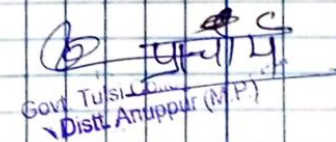 प्राचार्य
Govt Tulsi Co
Distt. Anuppur (M.P.)